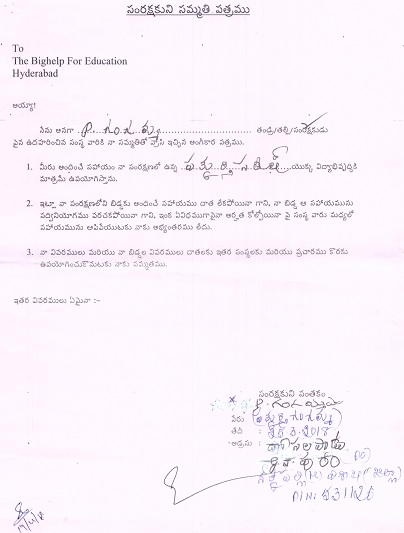 సంరక్షకుని సమ్మతి పత్రము
To
The Bighelp For Education
Hyderabad
అయ్యా!
నేను అనగా P. గంగమ్మ తండ్రి/తల్లి/సంరక్షకుడు
పైన ఉదహరించిన సంస్థ వారికి నా సమ్మతితో వ్రాసి ఇచ్చిన అంగీకార పత్రము.
1. మీరు అందించే సహాయం నా సంరక్షణలో ఉన్న యొక్క విద్యాభివృద్ధికి
మాత్రమే ఉపయోగిస్తాను.
2. ఇట్లూ నా సంరక్షణలోని బిడ్డకు అందించే సహాయము దాత లేకపోయినా గాని, నా బిడ్డ ఆ సహాయమును
సద్వినియోగము పరచకపోయినా గాని, ఇంక ఏవిధముగానైనా అర్హత కోల్పోయినా పై సంస్థ వారు మధ్యలో
సహాయమును ఆపివేయుటకు నాకు అభ్యంతరము లేదు.
3. నా వివరములు మరియు నా బిడ్డల వివరములు దాతలకు ఇతర సంస్థలకు మరియు ప్రచారము కొరకు
ఉపయోగించుకొనుటకు నాకు సమ్మతము.
ఇతర వివరములు ఏమైనా :-
సంరక్షకుని సంతకం
పేరు
తేది :
అడ్రసు :
PIN: 531126